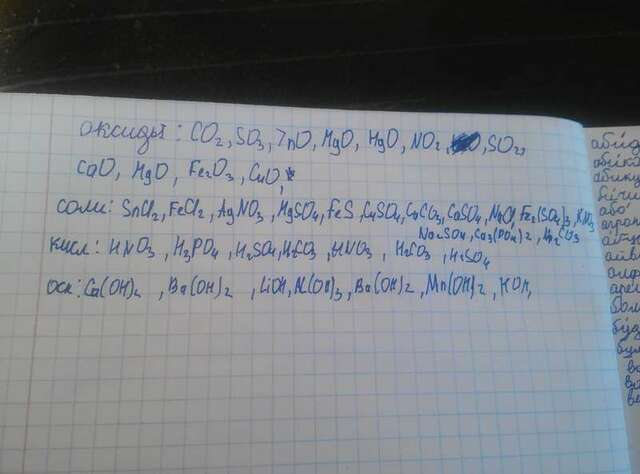 оксиды: CO2, SO3, ZnO, MgO, HgO, NO2, SO2,
CaO, MgO, Fe2O3, CuO,
соли: SnCl2, FeCl2, AgNO3, MgSO4, FeS, CuSO4, CaCO3, CaSO4, NaCl, Fe2(SO4)3, KNO3
Na2SO4, Ca3(PO4)2, Na2CO3
кисл: HNO3, H3PO4, H2SO4, H2CO3, HNO3, H2CO3, H2SO4
осн: Ca(OH)2, Ba(OH)2, LiOH, Al(OH)3, Ba(OH)2, Mn(OH)2, KOH,
або